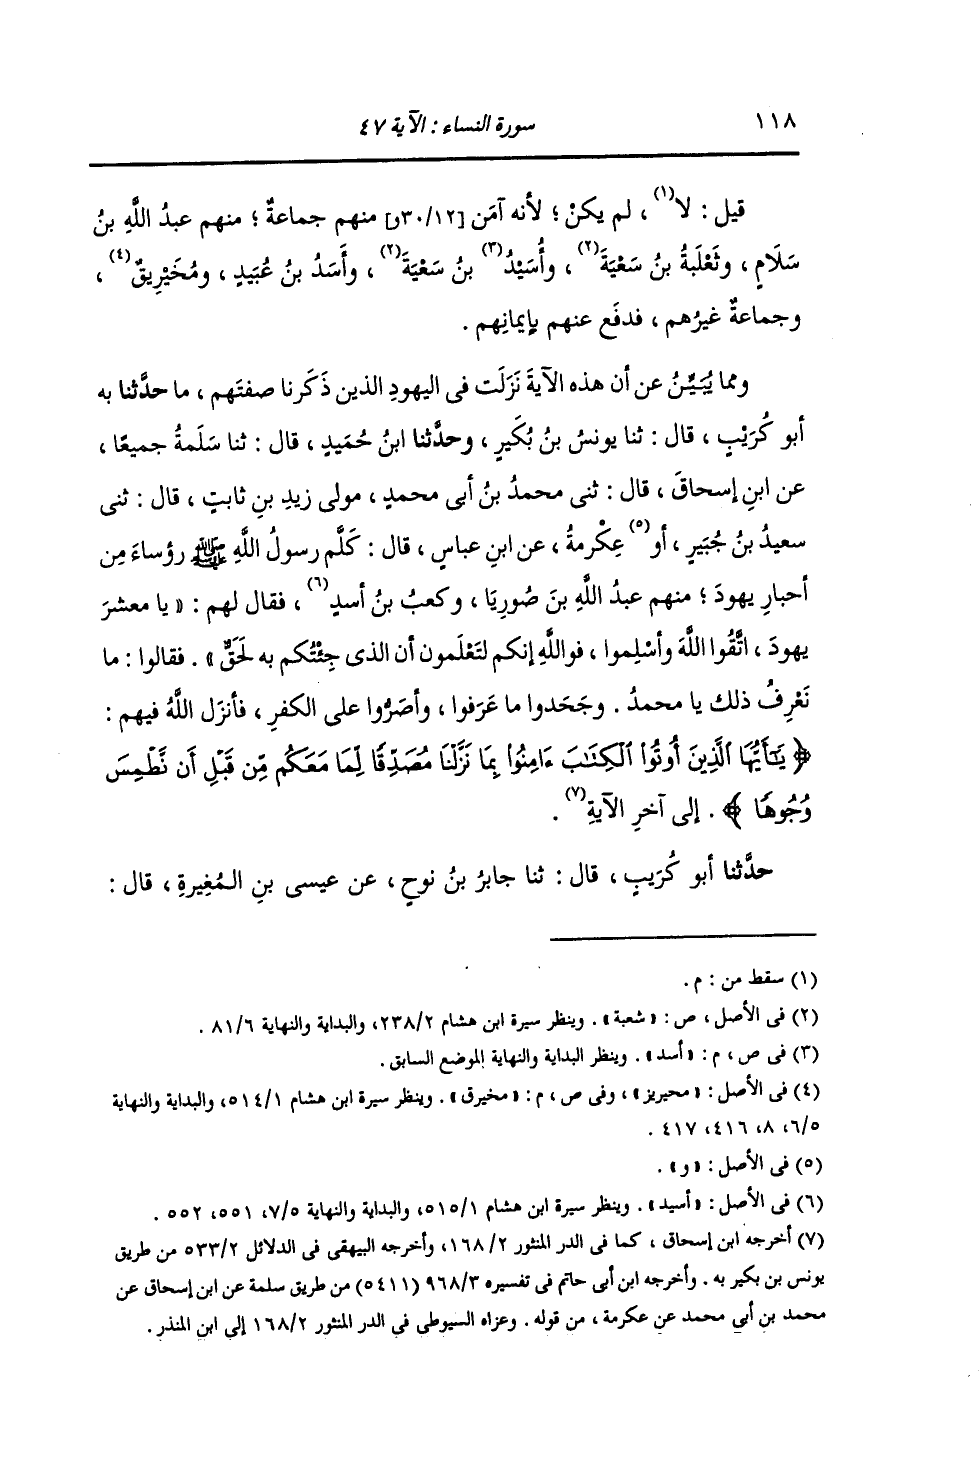 ١١٨ سورة النساء : الآية ٤٧
قيل : لا(١) ، لم يكنْ ؛ لأنه آمَن [٣٠/١٢و] منهم جماعةٌ ؛ منهم عبدُ اللَّهِ بنُ
سَلَامٍ ، وثَعْلَبةُ بنُ سَعْيَةَ(٢) ، وأُسَيْدُ(٣) بنُ سَعْيَةَ(٢) ، وأَسَدُ بنُ عُبَيدٍ ، ومُخَيْرِيقٌ(٤) ،
وجماعةٌ غيرُهم ، فدفَع عنهم بإيمانِهم .
ومما يُبَيِّنُ عن أن هذه الآيةَ نَزَلَت فى اليهودِ الذين ذَكَرنا صفتَهم ، ما حدَّثنا به
أبو كُرَيْبٍ ، قال : ثنا يونسُ بنُ بُكَيرٍ ، وحدَّثنا ابنُ حُمَيدٍ ، قال : ثنا سَلَمةُ جميعًا ،
عن ابنِ إسحاقَ ، قال : ثنى محمدُ بنُ أبى محمدٍ ، مولى زيدِ بنِ ثابتٍ ، قال : ثنى
سعيدُ بنُ جُبَيرٍ ، أو(٥) عِكْرمةُ ، عن ابنِ عباسٍ ، قال : كَلَّم رسولُ اللَّهِ ﷺ رؤساءَ مِن
أحبارِ يهودَ ؛ منهم عبدُ اللَّهِ بنَ صُورِيَا ، وكعبُ بنُ أسدٍ(٦) ، فقال لهم : « يا معشرَ
يهودَ ، اتَّقُوا اللَّهَ وأَسْلِموا ، فواللَّهِ إنكم لتَعْلَمون أن الذى جِئْتُكم به لَحَقٌّ » . فقالوا : ما
نَعْرِفُ ذلك يا محمدُ . وجَحَدوا ما عَرَفوا ، وأصَرُّوا على الكفرِ ، فأنزَل اللَّهُ فيهم :
﴿ يَـٰٓأَيُّهَا ٱلَّذِينَ أُوتُوا۟ ٱلْكِتَـٰبَ ءَامِنُوا۟ بِمَا نَزَّلْنَا مُصَدِّقًا لِّمَا مَعَكُم مِّن قَبْلِ أَن نَّطْمِسَ
وُجُوهًا ﴾ . إلى آخرِ الآيةِ(٧) .
حدَّثنا أبو كُرَيبٍ ، قال : ثنا جابرُ بنُ نوحٍ ، عن عيسى بنِ المُغِيرةِ ، قال :
(١) سقط من : م .
(٢) فى الأصل ، ص : «شعبة» . وينظر سيرة ابن هشام ٢٣٨/٢، والبداية والنهاية ٨١/٦ .
(٣) فى ص ، م : «أسد» . وينظر البداية والنهاية الموضع السابق .
(٤) فى الأصل : «محيريز» ، وفى ص ، م : «مخيرق» . وينظر سيرة ابن هشام ٥١٤/١، والبداية والنهاية
٦/٥، ٨، ٤١٦، ٤١٧ .
(٥) فى الأصل : «و» .
(٦) فى الأصل : «أسيد» . وينظر سيرة ابن هشام ٥١٥/١، والبداية والنهاية ٧/٥، ٥٥١، ٥٥٢ .
(٧) أخرجه ابن إسحاق ، كما فى الدر المنثور ١٦٨/٢، وأخرجه البيهقى فى الدلائل ٥٣٣/٢ من طريق
يونس بن بكير به . وأخرجه ابن أبى حاتم فى تفسيره ٩٦٨/٣ (٥٤١١) من طريق سلمة عن ابن إسحاق عن
محمد بن أبي محمد عن عكرمة ، من قوله . وعزاه السيوطى في الدر المنثور ١٦٨/٢ إلى ابن المنذر .